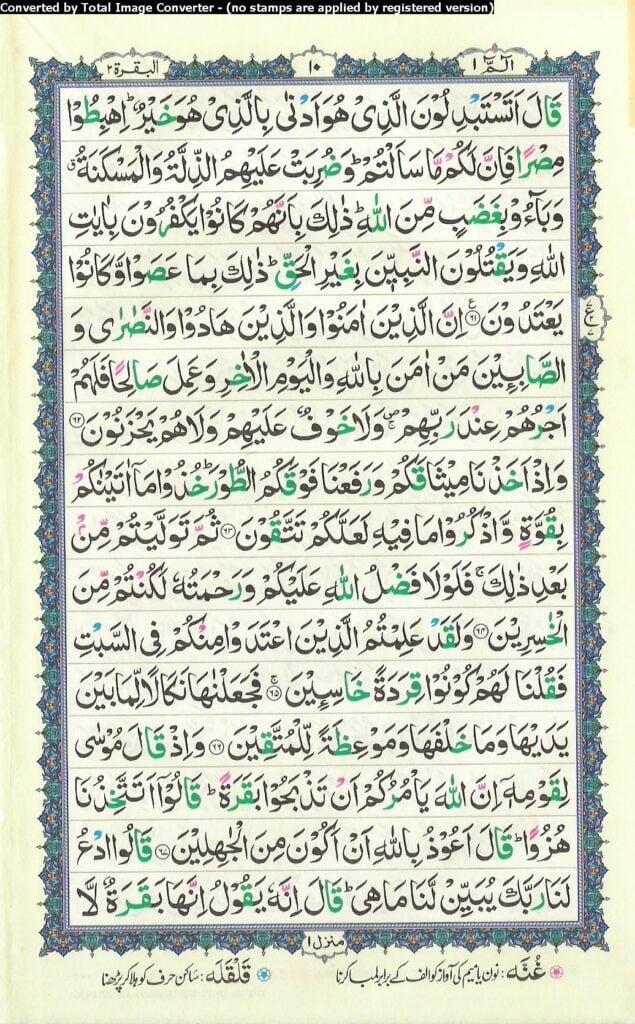 Converted by Total Image Converter - (no stamps are applied by registered version)
الٓمّٓ ١
١٠
البقرة ٢
قَالَ اَتَسْتَبْدِلُوْنَ الَّذِیْ هُوَ اَدْنٰی بِالَّذِیْ هُوَ خَیْرٌ ؕ اِهْبِطُوْا
مِصْرًا فَاِنَّ لَكُمْ مَّا سَاَلْتُمْ ؕ وَضُرِبَتْ عَلَیْهِمُ الذِّلَّةُ وَالْمَسْكَنَةُ ۗ
وَبَآءُوْ بِغَضَبٍ مِّنَ اللّٰهِ ؕ ذٰلِكَ بِاَنَّهُمْ كَانُوْا یَكْفُرُوْنَ بِاٰیٰتِ
اللّٰهِ وَیَقْتُلُوْنَ النَّبِیّٖنَ بِغَیْرِ الْحَقِّ ؕ ذٰلِكَ بِمَا عَصَوْا وَّكَانُوْا
یَعْتَدُوْنَ ﴿۶۱﴾ اِنَّ الَّذِیْنَ اٰمَنُوْا وَالَّذِیْنَ هَادُوْا وَالنَّصٰرٰی وَ
الصَّابِـِٕیْنَ مَنْ اٰمَنَ بِاللّٰهِ وَالْیَوْمِ الْاٰخِرِ وَعَمِلَ صَالِحًا فَلَهُمْ
اَجْرُهُمْ عِنْدَ رَبِّهِمْ ۪ۚ وَلَا خَوْفٌ عَلَیْهِمْ وَلَا هُمْ یَحْزَنُوْنَ ﴿۶۲﴾
وَاِذْ اَخَذْنَا مِیْثَاقَكُمْ وَرَفَعْنَا فَوْقَكُمُ الطُّوْرَ ؕ خُذُوْا مَاۤ اٰتَیْنٰكُمْ
بِقُوَّةٍ وَّاذْكُرُوْا مَا فِیْهِ لَعَلَّكُمْ تَتَّقُوْنَ ﴿۶۳﴾ ثُمَّ تَوَلَّیْتُمْ مِّنْۢ
بَعْدِ ذٰلِكَ ۚ فَلَوْلَا فَضْلُ اللّٰهِ عَلَیْكُمْ وَرَحْمَتُهٗ لَكُنْتُمْ مِّنَ
الْخٰسِرِیْنَ ﴿۶۴﴾ وَلَقَدْ عَلِمْتُمُ الَّذِیْنَ اعْتَدَوْا مِنْكُمْ فِی السَّبْتِ
فَقُلْنَا لَهُمْ كُوْنُوْا قِرَدَةً خَاسِـِٕیْنَ ﴿۶۵﴾ۚ فَجَعَلْنٰهَا نَكَالًا لِّمَا بَیْنَ
یَدَیْهَا وَمَا خَلْفَهَا وَمَوْعِظَةً لِّلْمُتَّقِیْنَ ﴿۶۶﴾ وَاِذْ قَالَ مُوْسٰی
لِقَوْمِهٖۤ اِنَّ اللّٰهَ یَاْمُرُكُمْ اَنْ تَذْبَحُوْا بَقَرَةً ؕ قَالُوْۤا اَتَتَّخِذُنَا
هُزُوًا ؕ قَالَ اَعُوْذُ بِاللّٰهِ اَنْ اَكُوْنَ مِنَ الْجٰهِلِیْنَ ﴿۶۷﴾ قَالُوا ادْعُ
لَنَا رَبَّكَ یُبَیِّنْ لَّنَا مَا هِیَ ؕ قَالَ اِنَّهٗ یَقُوْلُ اِنَّهَا بَقَرَةٌ لَّا
منزل ۱
غُنَّه : نون یا میم کی آواز کو الف کے برابر لمبا کرنا
قَلْقَلَه : ساکن حرف کو ہلا کر پڑھنا